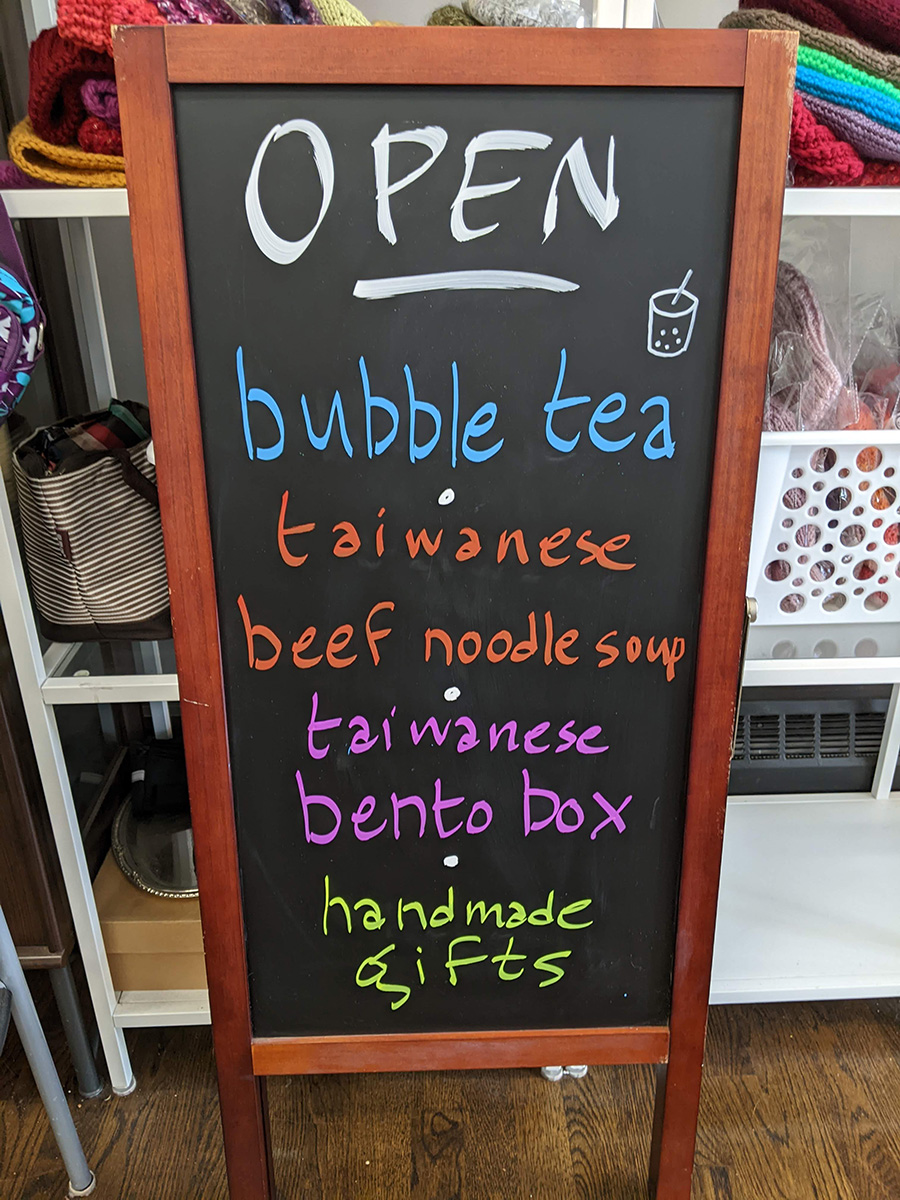 OPEN
bubble tea
taiwanese
beef noodle soup
taiwanese
bento box
handmade
gifts